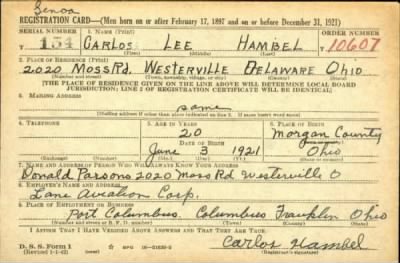 Genoa
REGISTRATION CARD—(Men born on or after February 17, 1897 and on or before December 31, 1921)
SERIAL NUMBER 1. NAME (Print) ORDER NUMBER
T 154 CARLOS LEE HAMBEL 10607
(First) (Middle) (Last)
2. PLACE OF RESIDENCE (Print)
2020 Moss Rd WESTERVILLE DELAWARE OHIO
(Number and street) (Town, township, village, or city) (County) (State)
[THE PLACE OF RESIDENCE GIVEN ON THE LINE ABOVE WILL DETERMINE LOCAL BOARD
JURISDICTION; LINE 2 OF REGISTRATION CERTIFICATE WILL BE IDENTICAL]
3. MAILING ADDRESS
same
[Mailing address if other than place indicated on line 2. If same insert word same]
4. TELEPHONE 5. AGE IN YEARS 6. PLACE OF BIRTH
20 Morgan County
DATE OF BIRTH (Town or county)
June 3 1921 Ohio
(Exchange) (Number) (Mo.) (Day) (Yr.) (State or country)
7. NAME AND ADDRESS OF PERSON WHO WILL ALWAYS KNOW YOUR ADDRESS
Donald Parsons 2020 Moss Rd Westerville O
8. EMPLOYER'S NAME AND ADDRESS
Lane Aviation Corp.
9. PLACE OF EMPLOYMENT OR BUSINESS
Port Columbus, Columbus Franklin Ohio
(Number and street or R. F. D. number) (Town) (County) (State)
I AFFIRM THAT I HAVE VERIFIED ABOVE ANSWERS AND THAT THEY ARE TRUE.
D. S. S. Form 1 Carlos Hambel
(Revised 1-1-42) (over) (Registrant's signature)